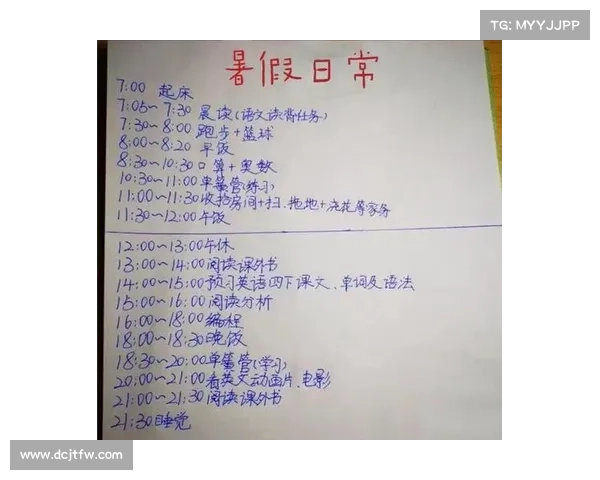 TG: MYYJJPP
暑假日常
7:00 起床
7:05~7:30 晨读(语文读背任务)
7:30~8:00 跑步+篮球
8:00~8:20 早饭
8:30~10:30 口算+奥数
10:30~11:00 单簧管(练习)
11:00~11:30 收拾房间+扫、拖地+浇花等家务
11:30~12:00 午饭
12:00~13:00 午休
13:00~14:00 阅读课外书
14:00~15:00 预习英语四下课文、单词及语法
15:00~16:00 阅读分析
16:00~18:00 编程
18:00~18:30 晚饭
18:30~20:00 单簧管(学习)
20:00~21:00 看英文动画片、电影
21:00~21:30 阅读课外书
21:30 睡觉
www.dcjtfw.com